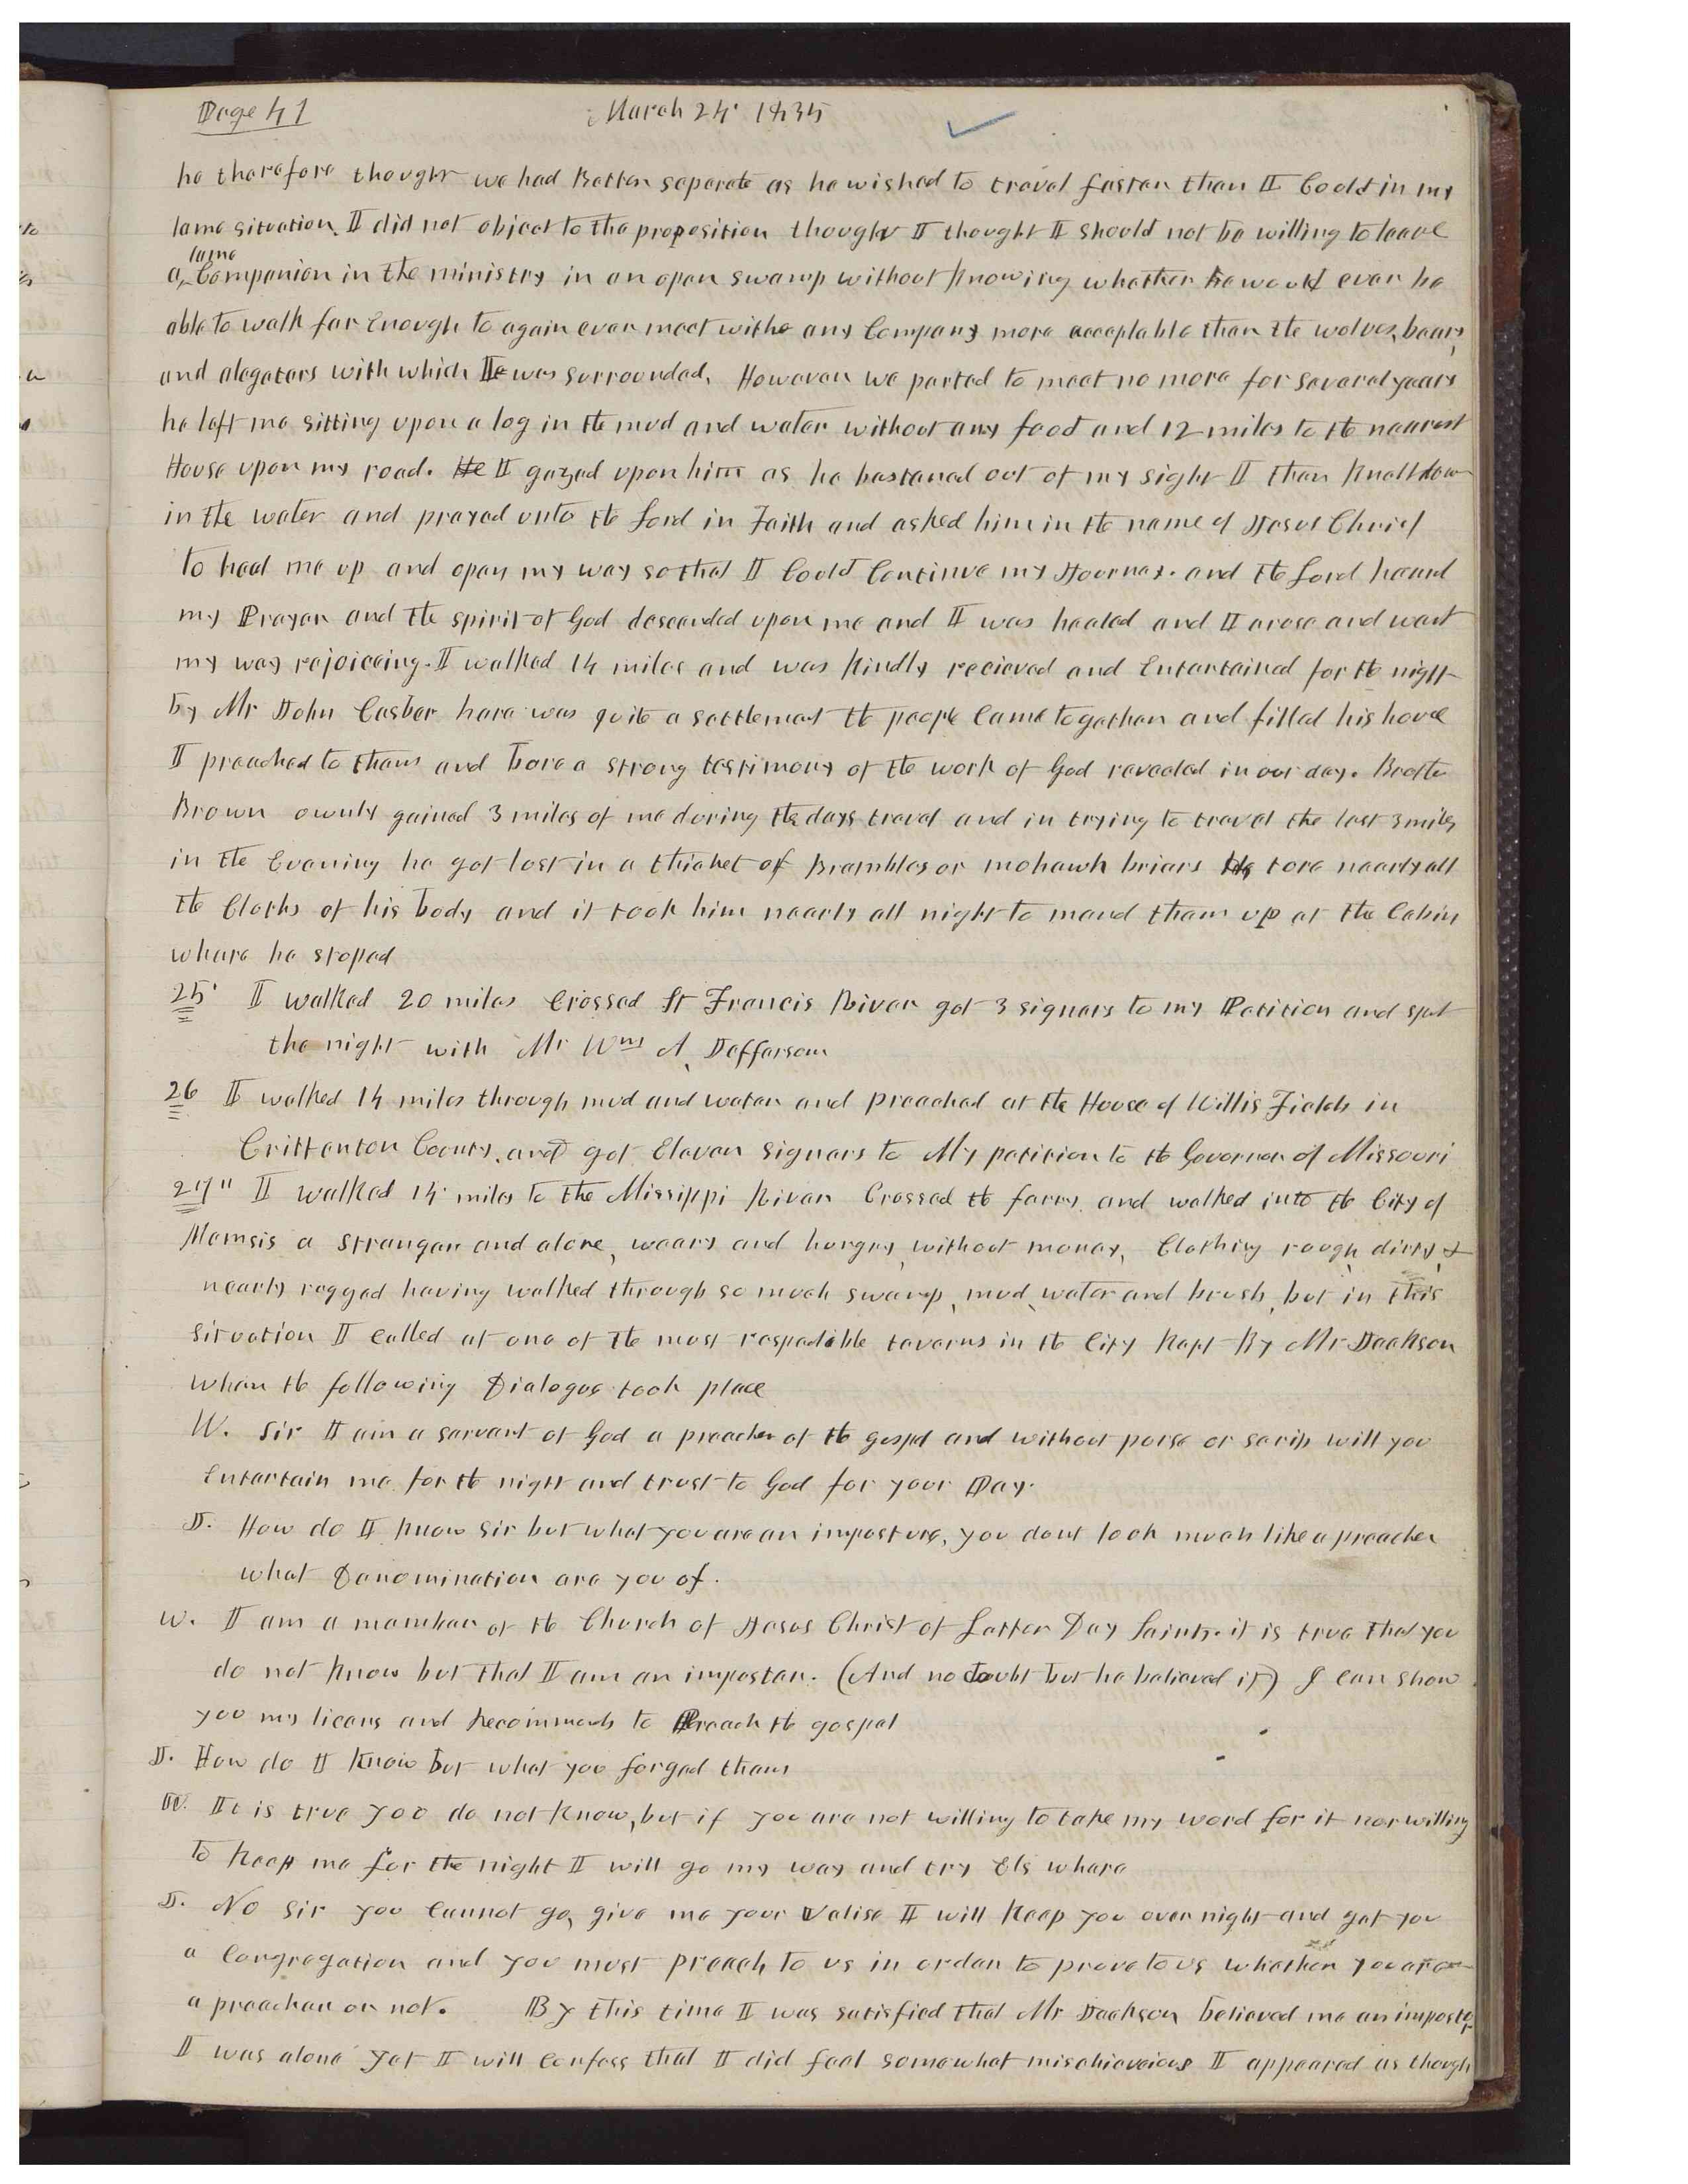 Page 41 March 24' 1835
he therefore thought we had Better seperate as he wished to travel faster than I Could in my
lame situation. I did not object to the proposition though I thought I should not be willing to leave
lame
a, Companion in the ministry in an open swamp without knowing whether he would ever be
able to walk far Enough to again ever meet with any Company more acceptable than the wolves, bears,
and alegators with which He was surrounded. However we parted to meet no more for several years
he left me sitting upon a log in the mud and water without any food and 12 miles to the nearest
House upon my road. He I gazed upon him as he hastened out of my sight I then knelt down
in the water and prayed unto the Lord in Faith and asked him in the name of Jesus Christ
to heal me up and open my way so that I Could Continue my Journey. and the Lord heard
my Prayer and the spirit of God descended upon me and I was healed and I arose and went
my way rejoiceing. I walked 14 miles and was kindly recieved and Entertained for the night
by Mr John Casber here was quite a settlement the people Came together and filled his house
I preached to them and bore a strong testimony of the work of God revealed in our day. Brother
Brown ownly gained 3 miles of me during the days travel and in trying to travel the last 3 miles
in the Evening he got lost in a thicket of Brambles or mohawk briars tore nearly all
the Cloths of his body and it took him nearly all night to mend them up at the Cabin
whare he stoped
25' I walked 20 miles Crossed St Francis River got 3 signers to my Petition and spent
the night with Mr Wm A, Jefferson
26 I walked 14 miles through mud and water and preached at the House of Willis Fields in
Crittenton County, and got Eleven signers to My petition to the Governor of Missouri
27" I walked 14 miles to the Missippi River Crossed the farry, and walked into the City of
Memsis a stranger and alone, weary and hungry, without money, Clothing rough, dirty, &
nearly ragged having walked through so much swamp, mud, water and brush, but in this
situation I called at one of the most respectible taverns in the City Kept By Mr Jackson
when the following Dialogue took place
W. Sir I am a servant of God a preacher of the gospel and without purse or scrip will you
Entertain me for the night and trust to God for your Pay.
J. How do I know sir but what you are an imposture, you dont look much like a preacher
what Denomination are you of.
W. I am a member of the Church of Jesus Christ of Latter Day Saints. it is true that you
do not know but that I am an imposter. (And no doubt but he believed it) I can show
you my licens and Recommends to Preach the gospel
J. How do I know but what you forged them
W. It is true you do not know, but if you are not willing to take my word for it nor willing
to keep me for the night I will go my way and try Els whare
J. No sir you Cannot go, give me your valise I will keep you over night and get you
a Congregation and you must preach to us in order to prove to us whether you are
a preacher or not. By this time I was satisfied that Mr Jackson believed me an imposter
I was alone yet I will Confess that I did feel somewhat mischieveious I appeared as though